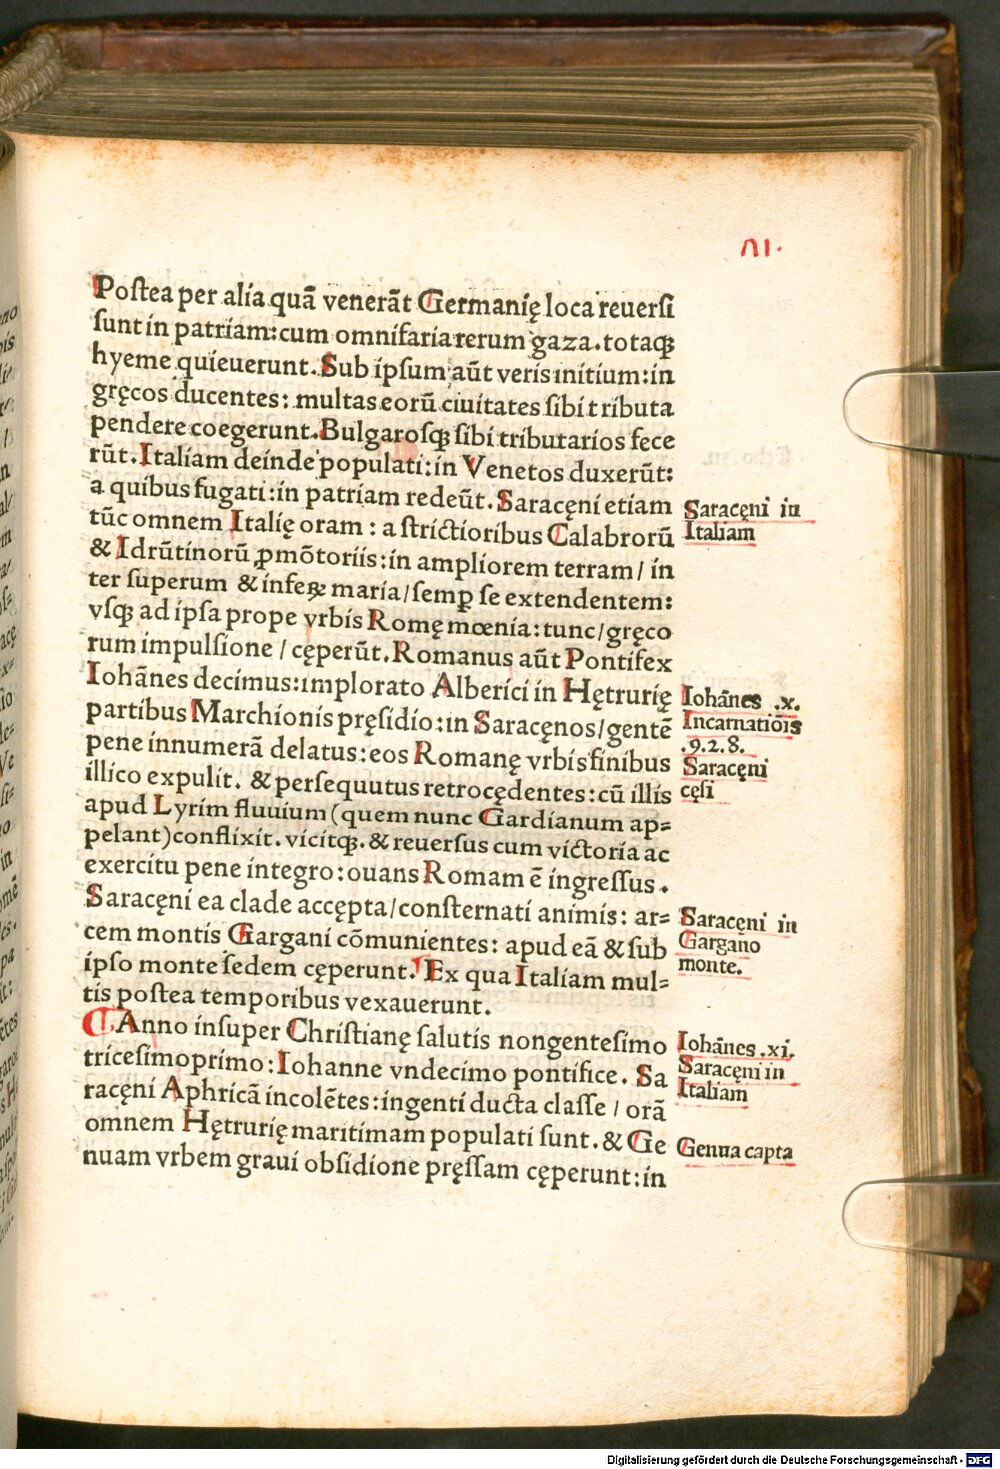 VI.
Poſtea per alia quā venerāt Germanię loca reuerſi
ſunt in patriam: cum omnifaria rerum gaza. totaqꝫ
hyeme quieuerunt. Sub ipſum aūt veris initium: in
gręcos ducentes: multas eorū ciuitates ſibi tributa
pendere coegerunt. Bulgaroſqꝫ ſibi tributarios fece
rūt. Italiam deinde populati: in Venetos duxerūt:
a quibus fugati: in patriam redeūt. Saracęni etiam
tūc omnem Italię oram: a ſtrictioribus Calabrorū
& Idrūtinorū ꝓmōtoriis: in ampliorem terram / in
ter ſuperum & infeꝝ maria / ſemꝑ ſe extendentem:
vſqꝫ ad ipſa prope vrbis Romę mœnia: tunc / gręco
rum impulſione / cęperūt. Romanus aūt Pontifex
Iohānes decimus: implorato Alberici in Hętrurię
partibus Marchionis pręſidio: in Saracęnos / gentē
pene innumerā delatus: eos Romanę vrbis finibus
illico expulit. & perſequutus retrocędentes: cū illis
apud Lyrim fluuium (quem nunc Gardianum ap⸗
pelant) conflixit. vicitqꝫ. & reuerſus cum victoria ac
exercitu pene integro: ouans Romam ē ingreſſus.
Saracęni ea clade accępta / conſternati animis: ar⸗
cem montis Gargani cōmunientes: apud eā & ſub
ipſo monte ſedem cęperunt. Ex qua Italiam mul⸗
tis poſtea temporibus vexauerunt.
Anno inſuper Chriſtianę ſalutis nongenteſimo
triceſimoprimo: Iohanne vndecimo pontifice. Sa
racęni Aphricā incolētes: ingenti ducta claſſe / orā
omnem Hętrurię maritimam populati ſunt. & Ge
nuam vrbem graui obſidione pręſſam cęperunt: in
Saracęni in
Italiam
Iohānes .x.
Incarnatiōis
.9.2.8.
Saracęni
cęſi
Saracęni in
Gargano
monte.
Iohānes .xi.
Saracęni in
Italiam
Genua capta
Digitalisierung gefördert durch die Deutsche Forschungsgemeinschaft - DFG